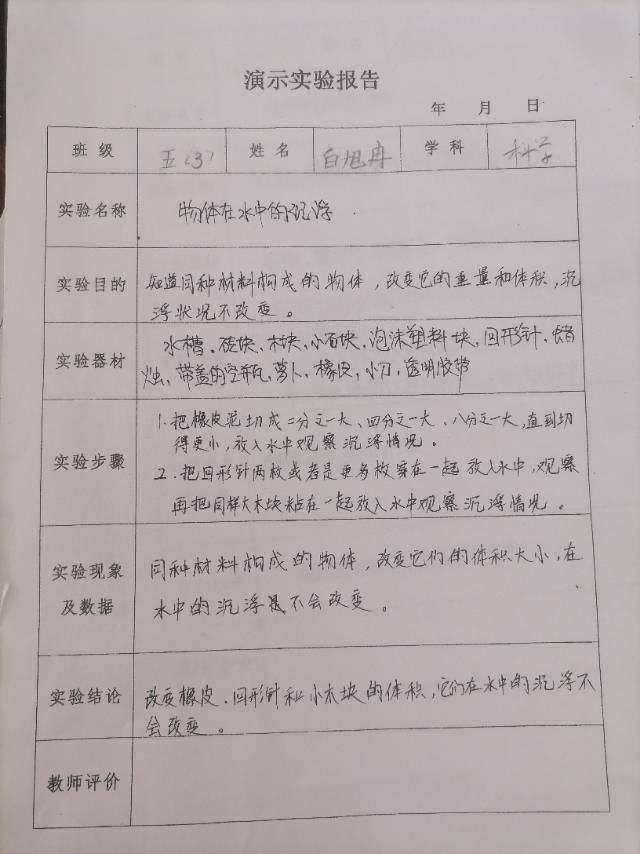 演示实验报告
年 月 日
班级 五(3) 姓名 白旭冉 学科 科学
实验名称 物体在水中的沉浮
实验目的 知道同种材料构成的物体，改变它的重量和体积，沉
浮状况不改变。
实验器材 水槽、砖块、木块、小石块、泡沫塑料块、回形针、蜡
烛、带盖的空瓶、萝卜、橡皮、小刀、透明胶带
实验步骤 1.把橡皮泥切成二分之一大、四分之一大、八分之一大，直到切
得更小，放入水中观察沉浮情况。
2.把回形针两枚或者是更多枚穿在一起放入水中，观察
再把同样大木块粘在一起放入水中观察沉浮情况。
实验现象
及数据
同种材料构成的物体，改变它们的体积大小，在
水中的沉浮是不会改变。
实验结论 改变橡皮、回形针和小木块的体积，它们在水中的沉浮不
会改变。
教师评价